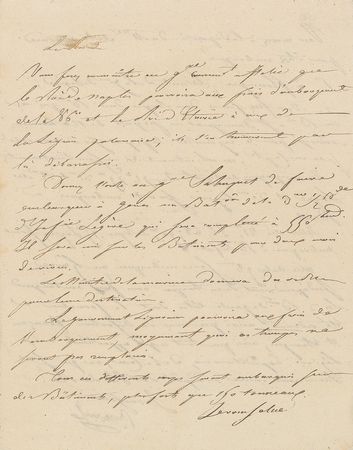 Vous ferez connaître au Gal
le Roi de Naples pourvoira aux frais d'embarquement
de la 86e et le Roi d'Etrurie à ceux de
la Légion polonaise; ils s'en
Donnez l'ordre au Gal Sahuguet de faire
embarquer à Gênes un Baton de la
d'Infie Légère qui sera complété à 550
Il sera mis sur les Bâtiments pour deux mois
de vivres.
Le Ministre de la marine donnera des ordres
pour leur destination.
Le gouvernement Ligurien pourvoira aux frais de
l'embarquement, moyennant quoi ces troupes ne
seront pas remplacées.
Tous ces différents corps seront embarqués sur
des Bâtiments, plus forts que 150 tonneaux.
Je vous salue